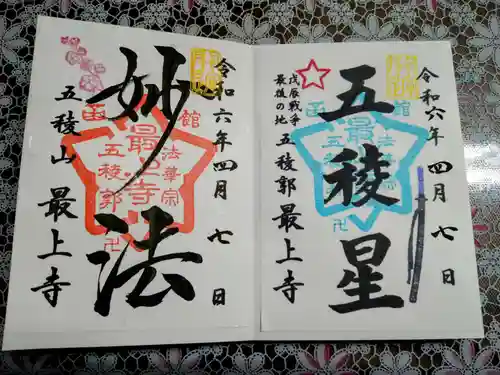 令和六年四月七日
五稜星
戊辰戦争
最後の地
五稜郭最上寺
函館
最上寺
五稜郭
法華宗
卍
令和六年四月七日
妙法
五稜山最上寺
函館
最上寺
五稜郭
法華宗
卍